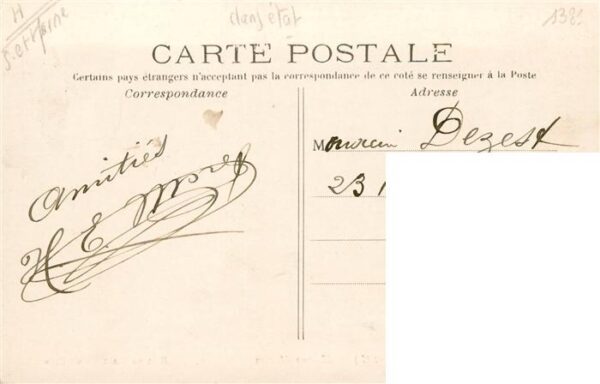 H
dans état
138
CARTE POSTALE
Certains pays étrangers n'acceptant pas la correspondance de ce coté se renseigner à la Poste
Correspondance
Adresse
Amitiés
H. E.
M
Dezest
23